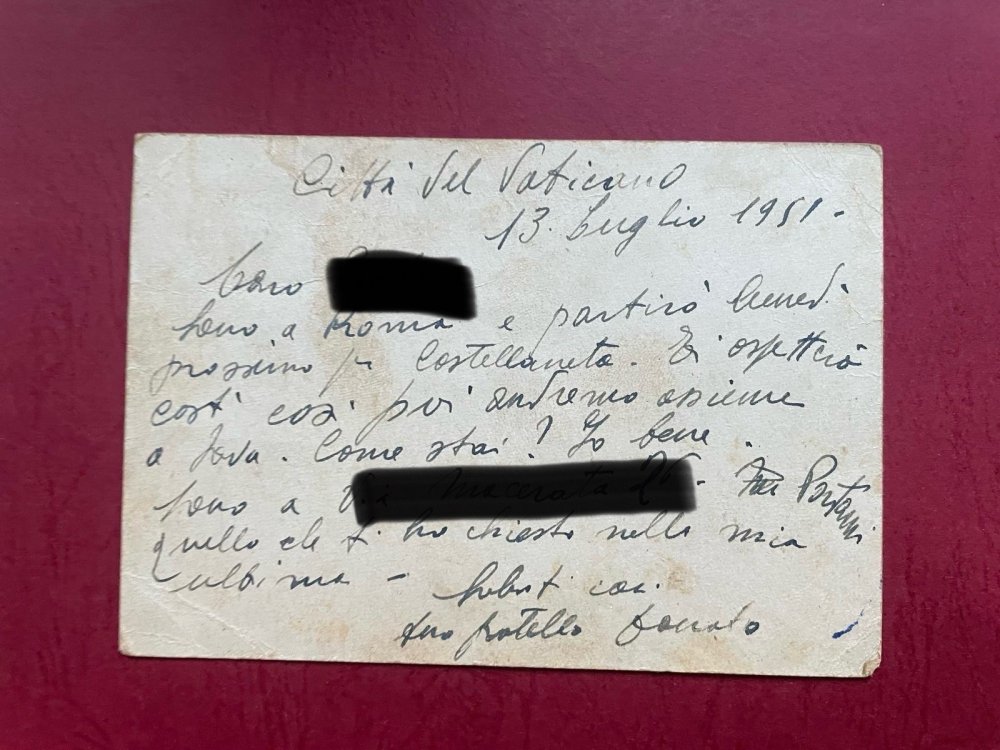 Città del Vaticano
13. Luglio 1951 -
Caro
Sono a Roma e partirò lunedì
prossimo per Castellaneta. Ti aspetterò
costì così poi andremo assieme
a Java. Come stai? Io bene.
Sono a - Portami
quello che ti ho chiesto nella mia
ultima -
Saluti cari
tuo fratello Donato